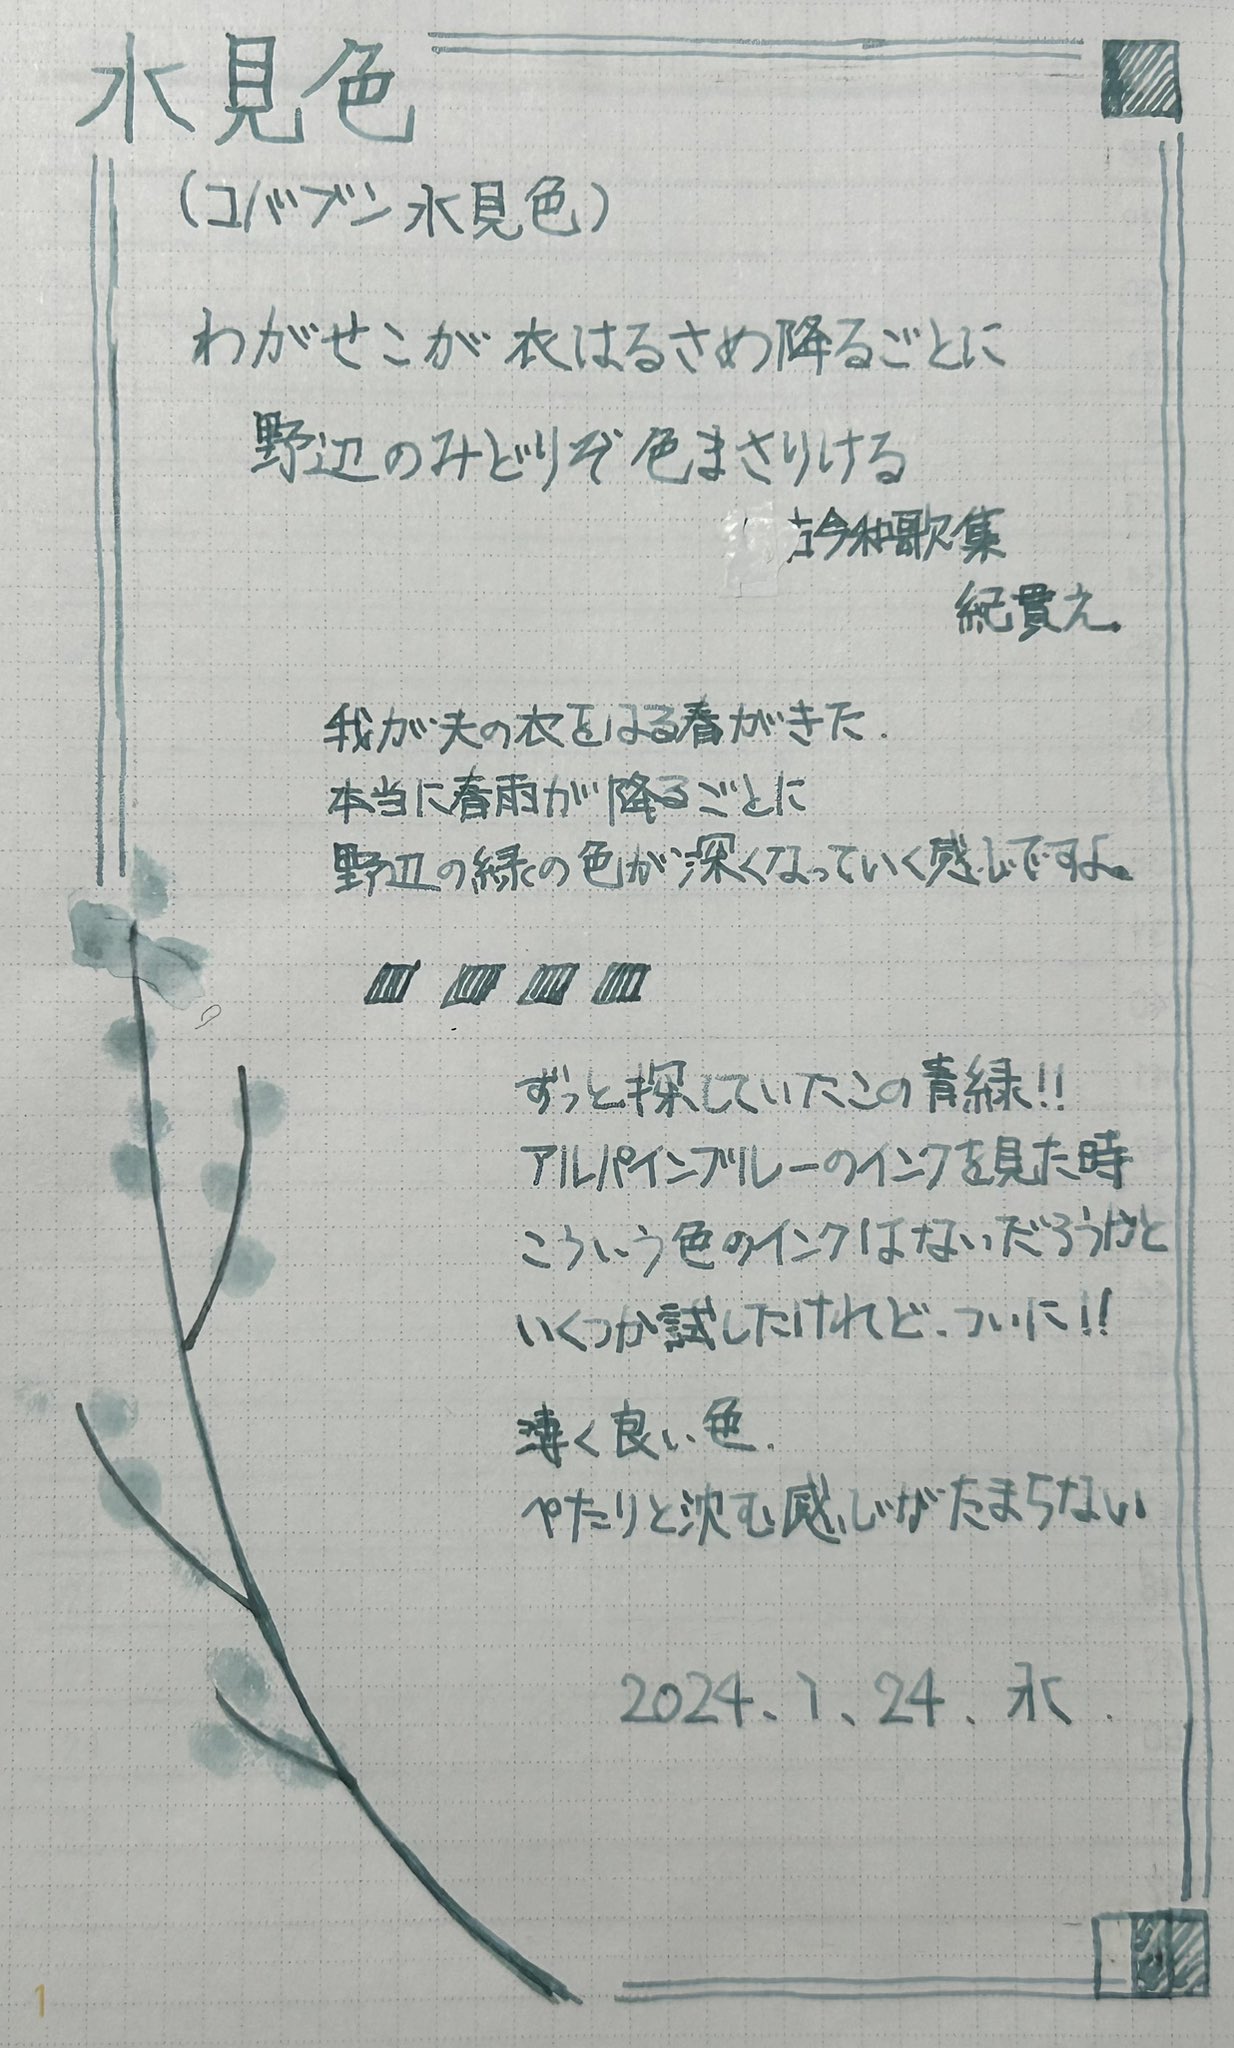 水見色
(コバブン 水見色)
わがせこが 衣はるさめ降るごとに
野辺のみどりぞ 色まさりける
古今和歌集
紀貫え.
我が夫の衣をはる春がきた.
本当に春雨が降るごとに
野辺の緑の色が深くなっていく感じですよ。
ずっと探していたこの青緑!!
アルパインブルーのインクを見た時
こういう色のインクはないだろうかと
いくつか試したけれど、ついに!!
薄く良い色.
ぺたりと沈む感じがたまらない
2024.1.24.水.
1